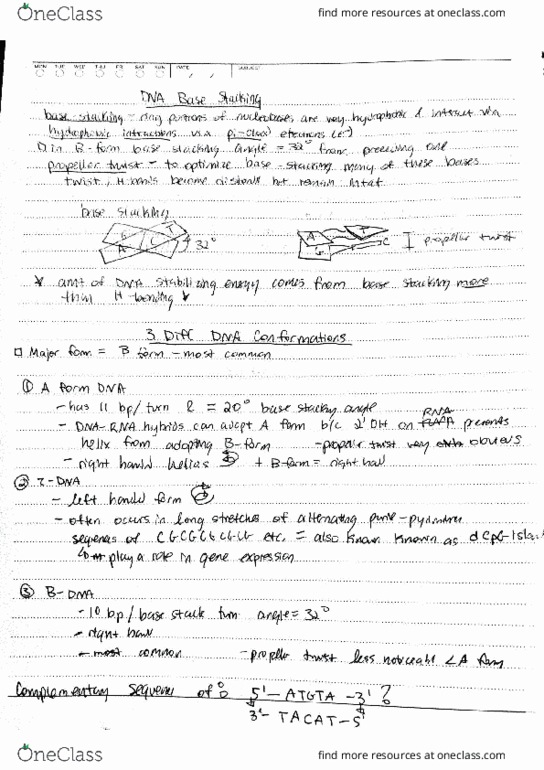 OneClass
find more resources at oneclass.com
MON TUE WED THU FRI SAT SUN DATE / / SUBJECT
DNA Base Stacking
base stacking - ring portions of nucleobases are very hydrophobic & interact via
hydrophobic interactions via pi-cloud electrons (e-)
in B-form base stacking angle = 32° from preceding one
propeller twist - to optimize base-stacking many of these bases
twist, H bonds become distorted but remain intact
base stacking
G T
A C 32°
A T
G C propeller twist
amt of DNA stabilizing energy comes from base stacking more
than H-bonding
3 Diff DNA Conformations
Major form = B form - most common
① A form DNA
- has 11 bp/turn & = 20° base stacking angle
- DNA-RNA hybrids can adopt A form b/c 2' OH on RNA prevents
helix from adopting B-form - propeller twist very obvious
- right handed helix + B-form = right hand
② Z-DNA
- left handed form
- often occurs in long stretches of alternating purine-pyrimidine
sequences of CGCGCGCGCG etc. = also known known as dCpG-islands
play a role in gene expression
③ B-DNA
- 10 bp/base stack turn angle = 32°
- right hand
- most common - propeller twist less noticeable < A form
Complementary sequence of: 5'- ATGTA -3' ?
3'- TACAT-5'
OneClass
find more resources at oneclass.com